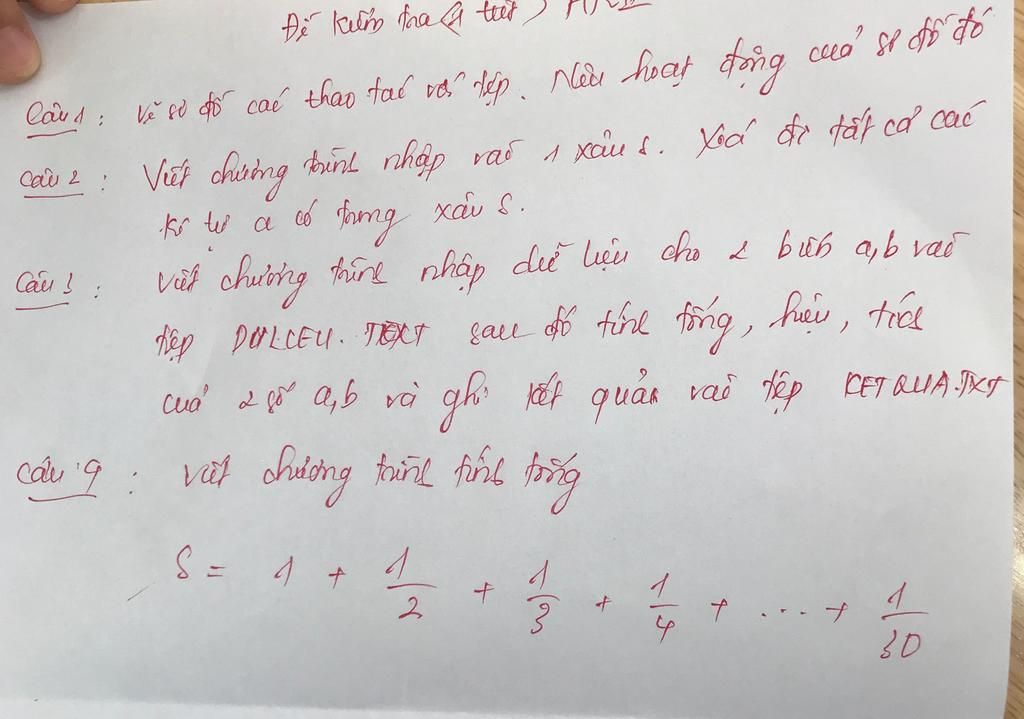 Đề kiểm tra (1 tiết)
Câu 1: Vẽ sơ đồ các thao tác với tệp. Nêu hoạt động của sơ đồ đó
Câu 2: Viết chương trình nhập vào 1 xâu S. Xoá đi tất cả các
kí tự a có trong xâu S.
Câu 3: Viết chương trình nhập dữ liệu cho 2 biến a,b vào
tệp DULIEU.TEXT sau đó tính tổng, hiệu, tích
của 2 số a,b và ghi kết quả vào tệp KETQUA.TXT
Câu 4: Viết chương trình tính tổng
S = 1 + 1/2 + 1/3 + 1/4 + ... + 1/30